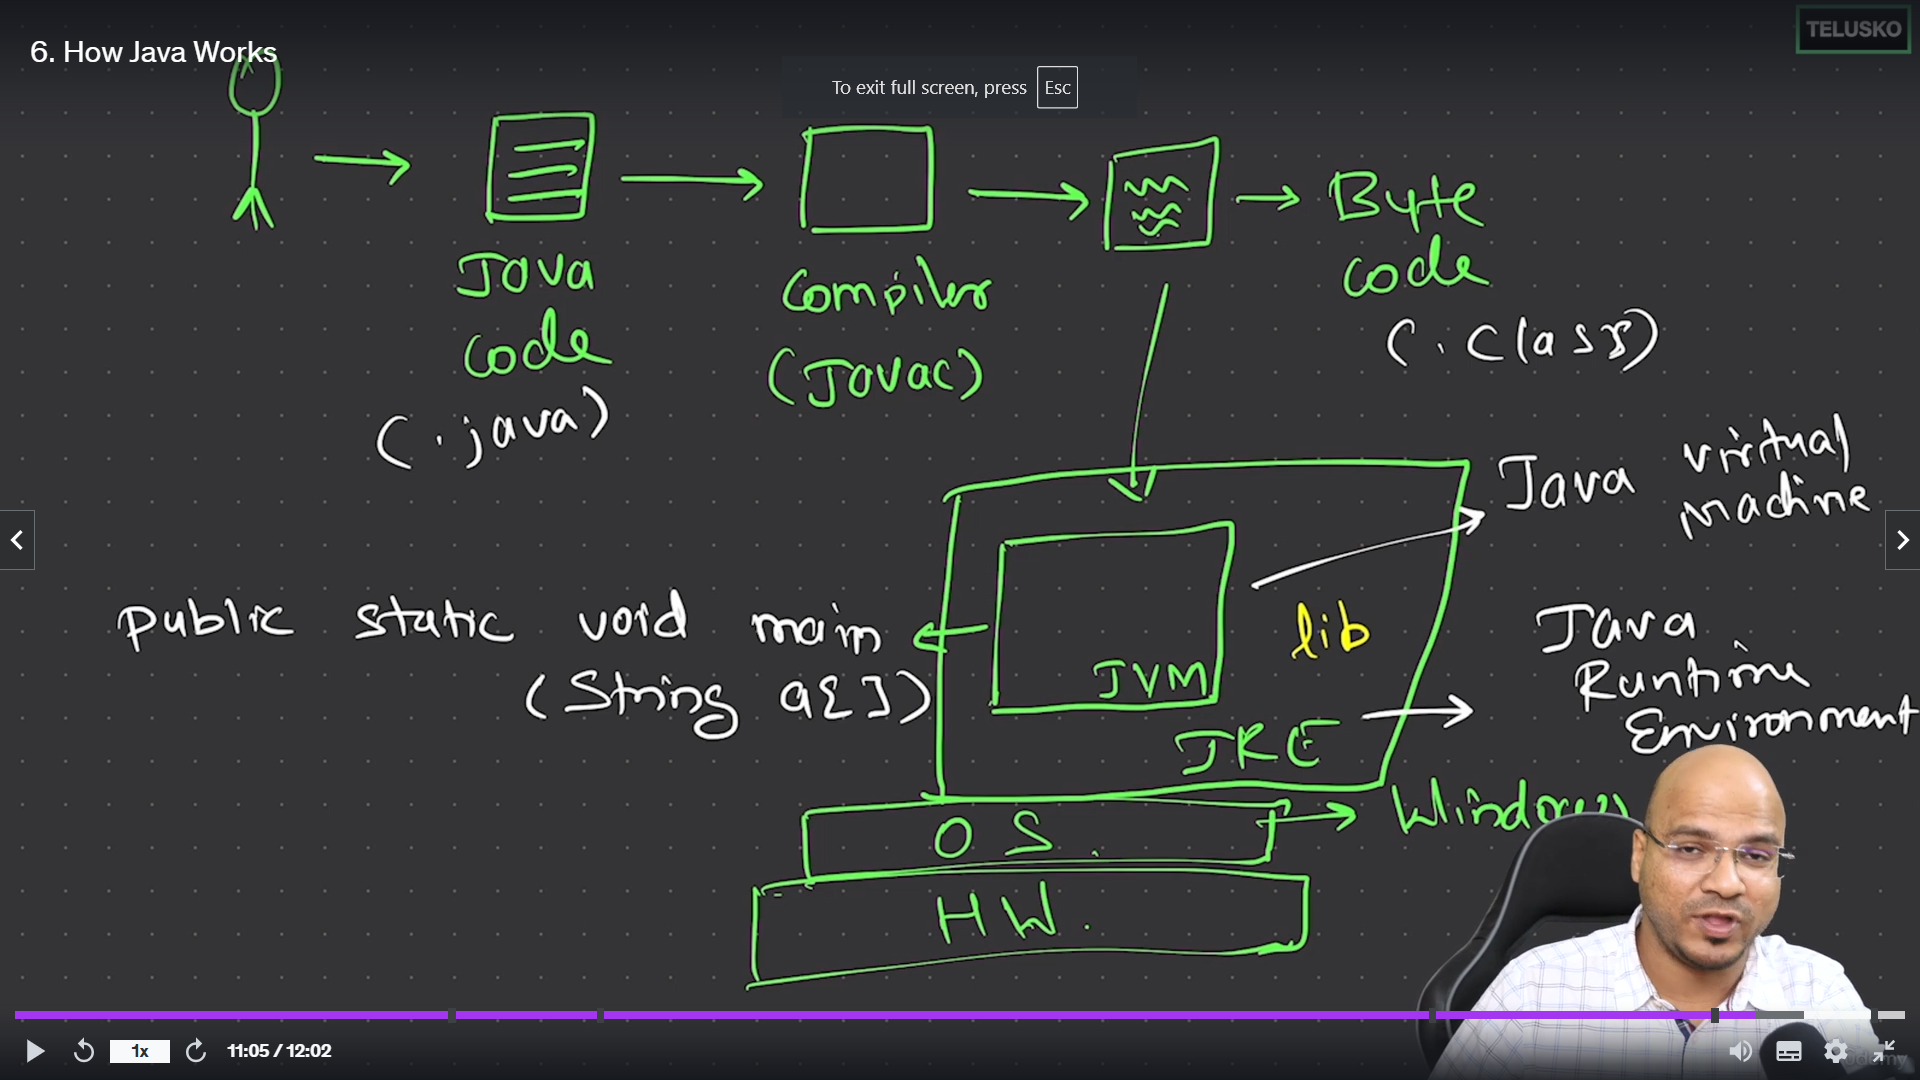 6. How Java Works
TELUSKO
To exit full screen, press Esc
Java
code
(.java)
Compiler
(Javac)
Byte
code
(.class)
Java virtual
machine
public static void main
(String a[])
lib
JVM
JRE
Java
Runtime
Environment
OS.
Windows
HW.
1x
11:05 / 12:02
udemy